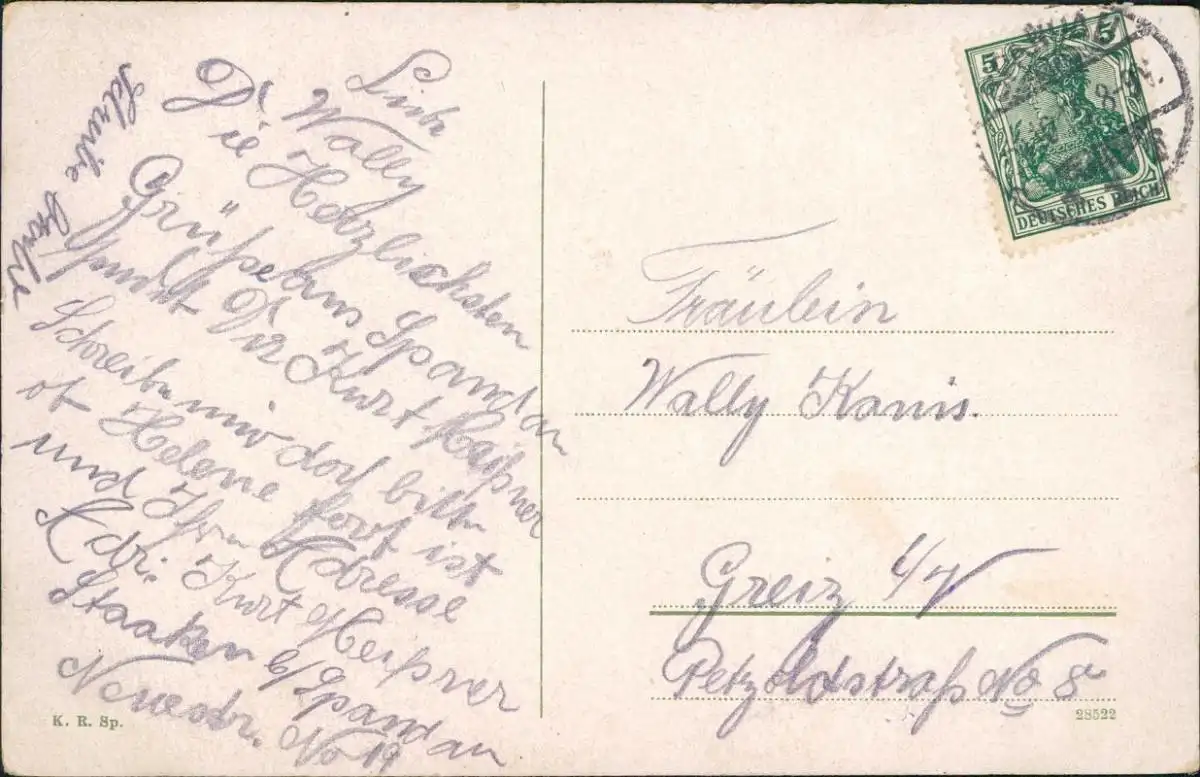 Liebe
Wally
Die Herzlichsten
Grüße aus Spandau
Dir Kurt Meißner
Schreibe mir doch bitte
ob Helene fort ist
und Ihre Adresse
Adr. Kurt Meißner
Staaken b/Spandau
Neuestr. No 19
Schreibe
K. R. Sp.
5 5
DEUTSCHES REICH
Fräulein
Wally Kanis.
Greiz i/V
Petzoldstraß No 8
28522